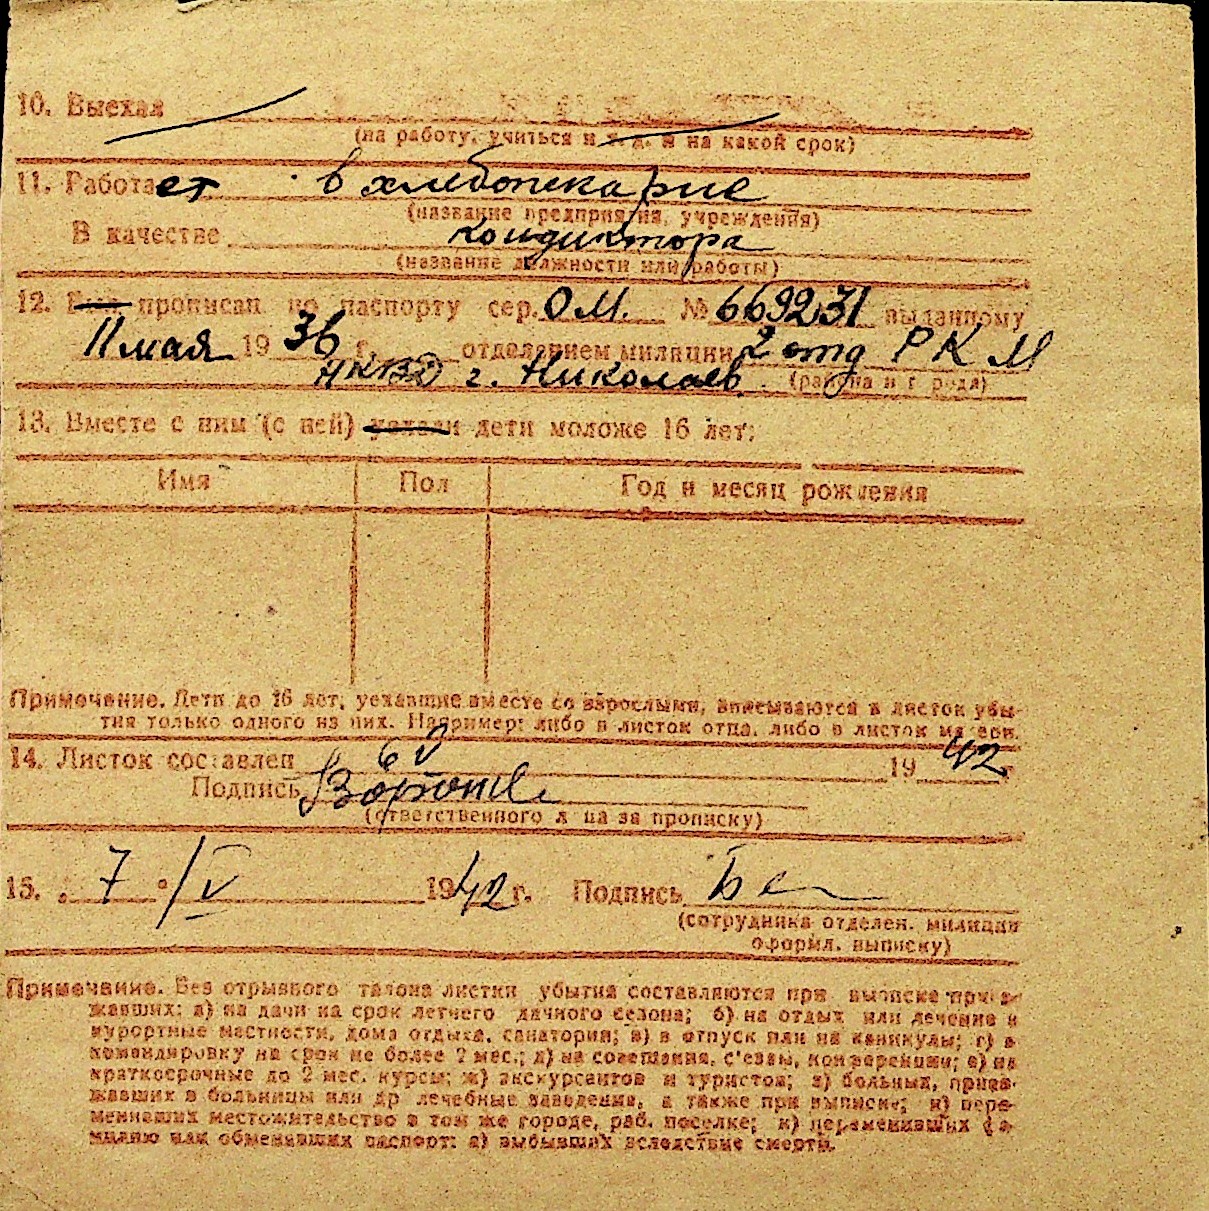 10. Выехал
(на работу, учиться и т. д. и на какой срок)
11. Работает в хлебопекарне
(название предприятия, учреждения)
В качестве кондиктора
(название должности или работы)
12. Был прописан по паспорту сер. ОМ. № 669231 выданному
11 мая 1936 г. отделением милиции 2 отд РКМ
НКВД г. Николаев (района и города)
13. Вместе с ним (с ней) уехали дети моложе 16 лет:
Имя Пол Год и месяц рождения
Примечание. Дети до 16 лет, уехавшие вместе со взрослыми, вписываются в листок убы-
тия только одного из них. Например: либо в листок отца, либо в листок матери.
14. Листок составлен 6 V 1942 г.
Подпись
(ответственного лица за прописку)
15. 7 /V 1942 г. Подпись
(сотрудника отделен. милиции
оформл. выписку)
Примечание. Без отрывного талона листки убытия составляются при выписке приез-
жавших: а) на дачи на срок летнего дачного сезона; б) на отдых или лечение в
курортные местности, дома отдыха, санатории; в) в отпуск или на каникулы; г) в
командировку на срок не более 2 мес.; д) на совещания, с'езды, конференции; е) на
краткосрочные до 2 мес. курсы; ж) экскурсантов и туристов; з) больных, приез-
жавших в больницы или др лечебные заведения, а также при выписке; и) пере-
менивших местожительство в том же городе, раб. поселке; к) переменивших фа-
милию или обменявших паспорт; л) выбывших вследствие смерти.